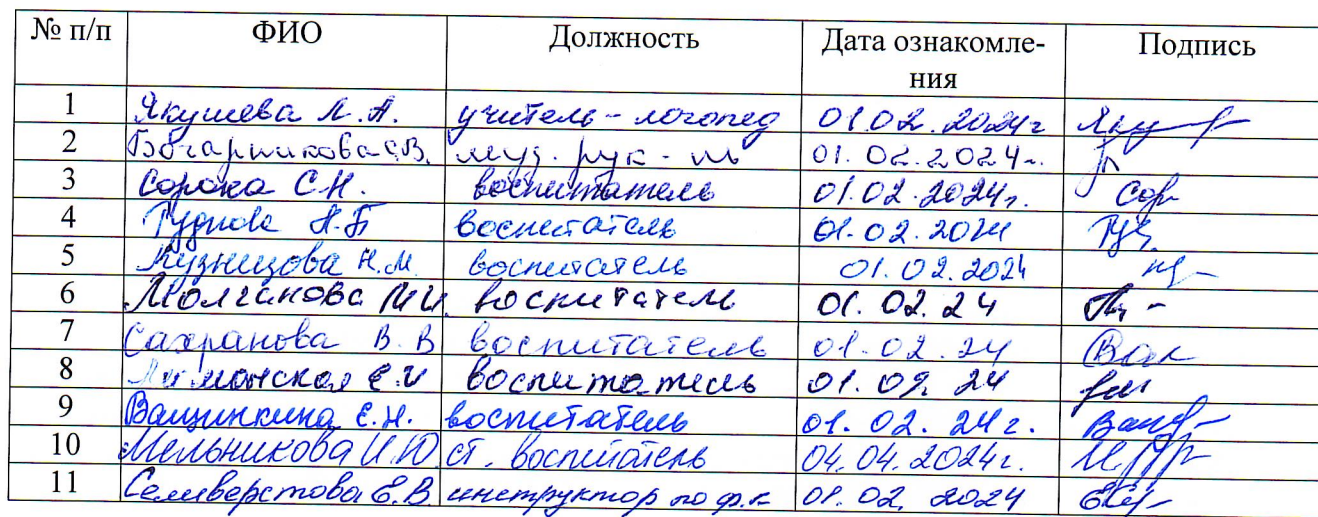 № п/п ФИО Должность Дата ознакомле-
ния Подпись
1 Якушева Л. А. учитель-логопед 01.02.2024г Яку
2 муз. рук-ль 01.02.2024г.
3 Сорока С.Н. воспитатель 01.02.2024г. Сор
4 воспитатель 01.02.2024
5 Кузнецова Н.М. воспитатель 01.02.2024
6 Молчанова М И. воспитатель 01.02.24
7 Сахранова В.В воспитатель 01.02.24
8 Лиманская Е.И воспитатель 01.02.24
9 Ващинкина Е.Н. воспитатель 01.02.24г.
10 Мельникова И.Ю. ст. воспитатель 04.04.2024г.
11 Селиверстова Е.В. инструктор по ф.к 01.02.2024